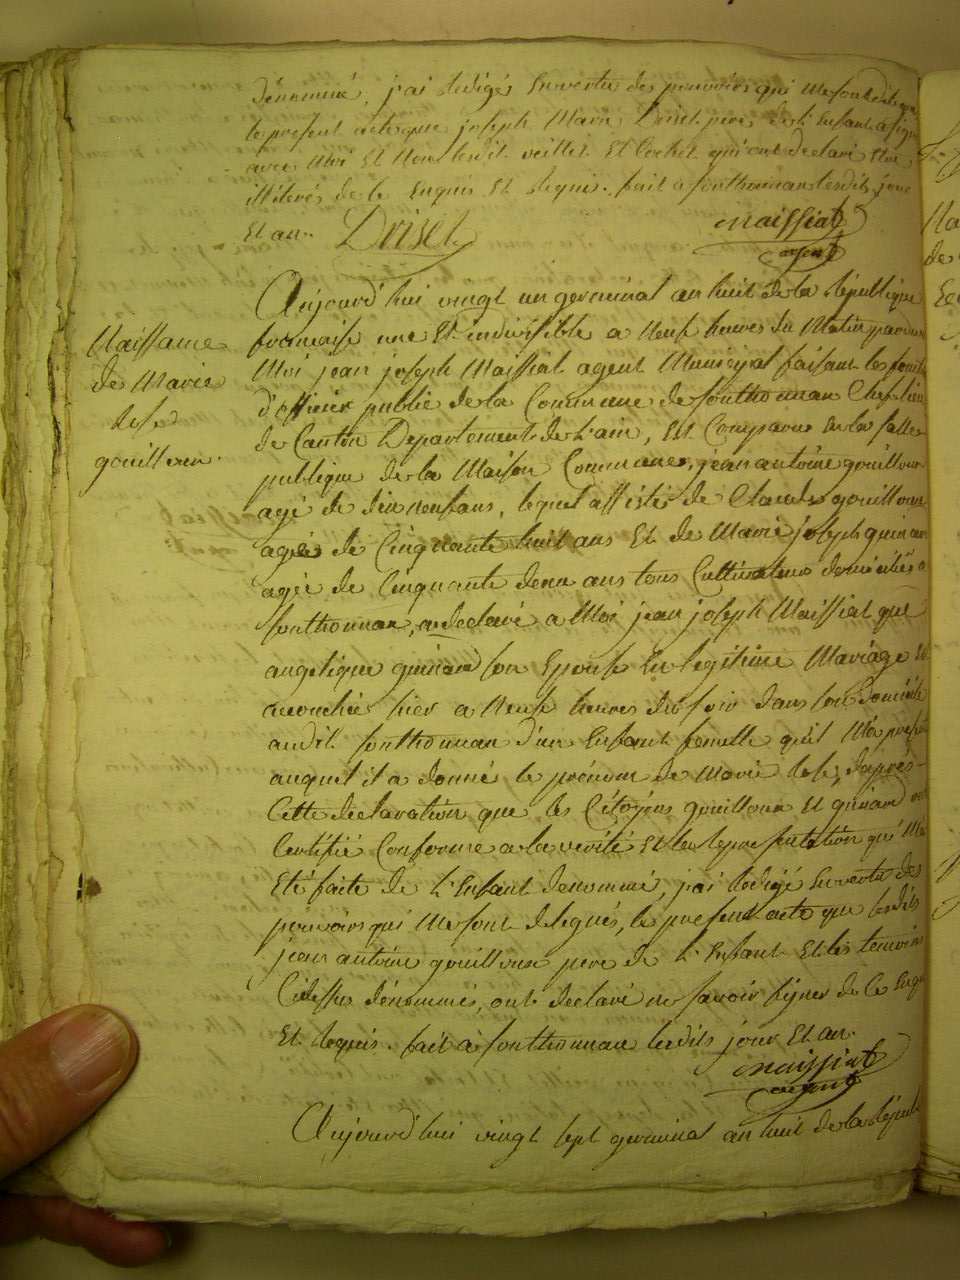 dénommé, j'ai redigé En vertu des pouvoirs qui me sont
le present acte que joseph Marie Driset pere de l'Enfant a signé
avec Moi Et Non lesdit veillet Et Cochet qui ont declaré Etre
illiterés de le Enquis Et Requis. fait a fonthonnan lesdits jour
Et an. Driset Maissiat
agent
Aujourd'hui vingt un germinal an huit de la République
francaise une Et indivisible a Neuf heures du Matin pardevant
Naissance
Moi jean joseph Maissiat agent Municipal faisant les fonct
de Marie
d'officier public de la Commune de fonthonnan Chef lieu
Rose
de Canton Departement de l'ain, Est Comparu En la salle
gouilloux.
publique de la Maison Commune, jean antoine gouilloux
agé de dix neuf ans, lequel assisté de Claude gouilloux
agé de Cinquante huit ans Et de Marie joseph guinard
agée de Cinquante deux ans tous Cultivateurs domiciliés a
fonthonnan, a declaré a Moi jean joseph Maissiat que
angelique guinard son Epouse En legitime Mariage Est
accouchée hier a Neuf heures du soir dans son domicile
audit fonthonnan d'un Enfant femelle qu'il M'a presenté
auquel il a donné le prénom de Marie Rose, d'après
Cette declaration que les Citoyens gouilloux Et guinard ont
Certifié Conforme a la verité Et la representation qui M'a
Eté faite de l'Enfant denommé, j'ai redigé En vertu des
pouvoirs qui Me sont delegués, le present acte que lesdits
jean antoine gouilloux pere de l'Enfant Et les temoins
Cidessus dénommés, ont declaré ne savoir signer de Ce Enquis
Et Requis. fait à fonthonnan lesdits jour Et an.
Maissiat
agent
Aujourd'hui vingt sept germinal an huit de la Républ